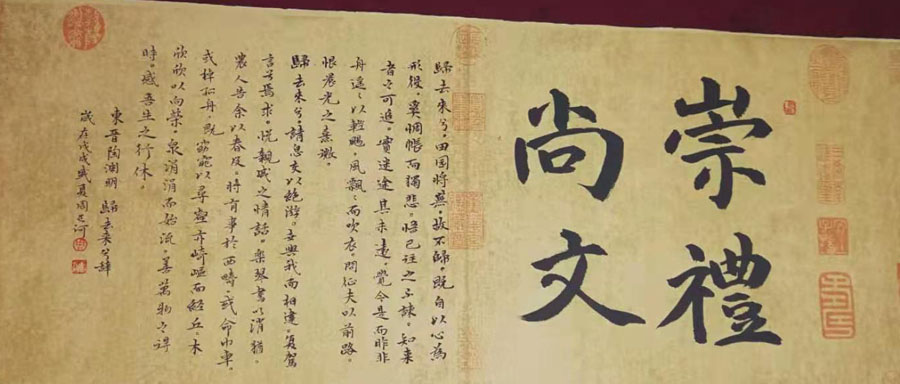 崇禮
尚文
歸去来兮。田園將蕪。故不歸。既自以心為
形役。奚惆悵而獨悲。悟已往之不諫。知来
者之可追。實迷途其未遠。覺今是而昨非
舟遥以輕颺。風飄而吹衣。問征夫以前路。
恨晨光之熹微。
歸去来兮。請息交以絶游。世與我而相違。复駕
言兮焉求。悦親戚之情話。樂琴書以消憂
農人告余以春及。將有事於西疇。或命巾車。
或棹孤舟。既窈窕以尋壑。亦崎嶇而經丘。木
欣欣以向榮。泉涓涓而始流。善萬物之得
時。感吾生之行休。
東晋陶淵明 歸去来兮辞
歲在戊戌盛夏周河